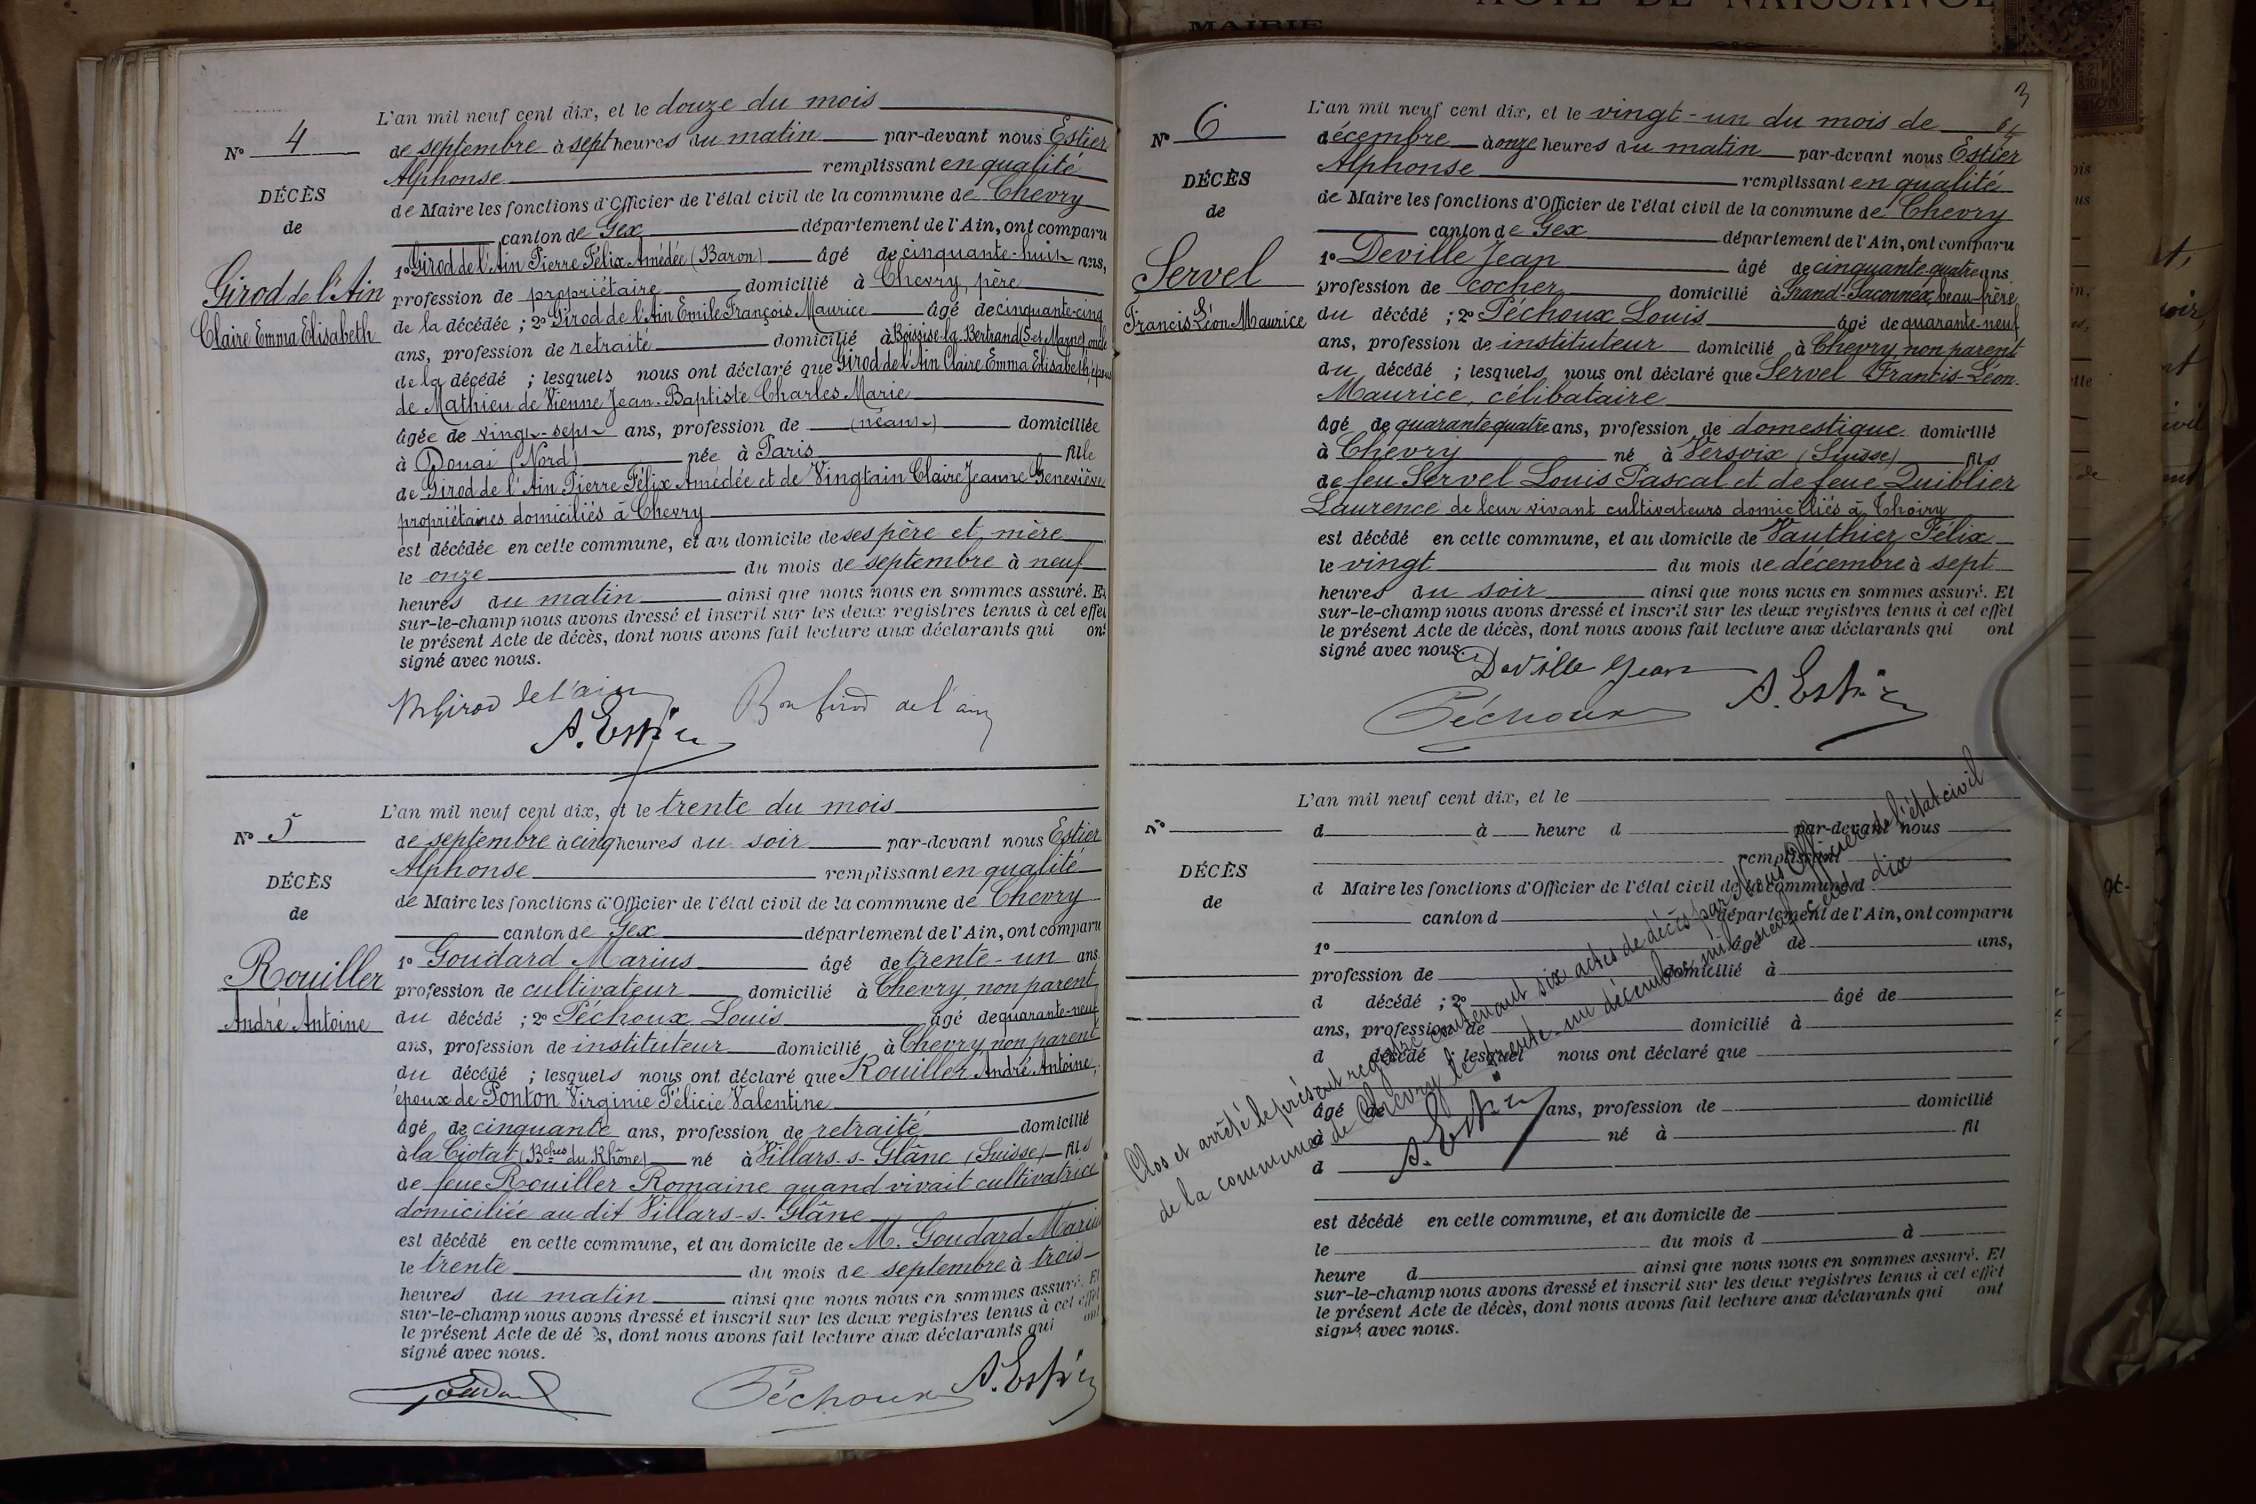 MAIRIE
ACTE DE NAISSANCE
L'an mil neuf cent dix, et le douze du mois
N° 4
de septembre à sept heures du matin par-devant nous Estier
Alphonse remplissant en qualité
DÉCÈS
de Maire les fonctions d'Officier de l'état civil de la commune de Chevry
de
canton de Gex département de l'Ain, ont comparu
1° Girod de l'Ain Pierre Félix Amédée (Baron) âgé de cinquante-huit ans,
Girod de l'Ain
profession de propriétaire domicilié à Chevry, père
Claire Emma Elisabeth
de la décédée ; 2° Girod de l'Ain Emile François Maurice âgé de cinquante-cinq
ans, profession de retraité domicilié à Boissise-la-Bertrand (S-et-Marne) oncle
de la décédé ; lesquels nous ont déclaré que Girod de l'Ain Claire Emma Elisabeth, épouse
de Mathieu de Vienne Jean-Baptiste Charles Marie
âgée de vingt-sept ans, profession de (néant) domiciliée
à Douai (Nord) née à Paris fille
de Girod de l'Ain Pierre Félix Amédée et de Vingtain Claire Jeanne Geneviève
propriétaires domiciliés à Chevry
est décédée en cette commune, et au domicile de ses père et mère
le onze du mois de septembre à neuf
heures du matin ainsi que nous nous en sommes assuré. Et
sur-le-champ nous avons dressé et inscrit sur les deux registres tenus à cet effet
le présent Acte de décès, dont nous avons fait lecture aux déclarants qui ont
signé avec nous.
MGirod de l'ain Bon Girod de l'ain
A. Estier
L'an mil neuf cent dix, et le trente du mois
N° 5
de septembre à cinq heures du soir par-devant nous Estier
Alphonse remplissant en qualité
DÉCÈS
de Maire les fonctions d'Officier de l'état civil de la commune de Chevry
de
canton de Gex département de l'Ain, ont comparu
1° Goudard Marius âgé de trente-un ans
Rouiller
profession de cultivateur domicilié à Chevry, non parent
André Antoine
du décédé ; 2° Péchoux Louis âgé de quarante-neuf
ans, profession de instituteur domicilié à Chevry, non parent
du décédé ; lesquels nous ont déclaré que Rouiller André Antoine,
époux de Ponton Virginie Félicie Valentine
âgé de cinquante ans, profession de retraité domicilié
à la Ciotat (Bches du Rhône) né à Villars-s-Glâne (Suisse) fils
de feue Rouiller Romaine quand vivait cultivatrice
domiciliée au dit Villars-s-Glâne
est décédé en cette commune, et au domicile de M. Goudard Marius
le trente du mois de septembre à trois
heures du matin ainsi que nous nous en sommes assuré. Et
sur-le-champ nous avons dressé et inscrit sur les deux registres tenus à cet effet
le présent Acte de décès, dont nous avons fait lecture aux déclarants qui ont
signé avec nous.
Goudard Péchoux A. Estier
3
L'an mil neuf cent dix, et le vingt-un du mois de
N° 6
décembre à onze heures du matin par-devant nous Estier
Alphonse remplissant en qualité
DÉCÈS
de Maire les fonctions d'Officier de l'état civil de la commune de Chevry
de
canton de Gex département de l'Ain, ont comparu
1° Deville Jean âgé de cinquante-quatre ans
Servel
profession de cocher domicilié à Grand-Saconnex, beau-frère
Francis Léon Maurice
du décédé ; 2° Péchoux Louis âgé de quarante-neuf
ans, profession de instituteur domicilié à Chevry, non parent
du décédé ; lesquels nous ont déclaré que Servel Francis-Léon-
Maurice, célibataire
âgé de quarante quatre ans, profession de domestique domicilié
à Chevry né à Versoix (Suisse) fils
de feu Servel Louis Pascal et de feue Quiblier
Laurence de leur vivant cultivateurs domiciliés à Thoiry
est décédé en cette commune, et au domicile de Vauthier Félix
le vingt du mois de décembre à sept
heures du soir ainsi que nous nous en sommes assuré. Et
sur-le-champ nous avons dressé et inscrit sur les deux registres tenus à cet effet
le présent Acte de décès, dont nous avons fait lecture aux déclarants qui ont
signé avec nous.
Deville Jean
Péchoux A. Estier
L'an mil neuf cent dix, et le
N°
d à heure d par-devant nous
remplissant
DÉCÈS
d Maire les fonctions d'Officier de l'état civil de la commune d
de
canton d département de l'Ain, ont comparu
1° âgé de ans,
profession de domicilié à
d décédé ; 2° âgé de
ans, profession de domicilié à
d décédé ; lesquel nous ont déclaré que
âgé de ans, profession de domicilié
à né à fil
d
est décédé en cette commune, et au domicile de
le du mois d à
heure d ainsi que nous nous en sommes assuré. Et
sur-le-champ nous avons dressé et inscrit sur les deux registres tenus à cet effet
le présent Acte de décès, dont nous avons fait lecture aux déclarants qui ont
signé avec nous.
Clos et arrêté le présent registre contenant six actes de décès par Nous Officier de l'état civil
de la commune de Chevry le trente-un décembre mil neuf cent dix
A. Estier